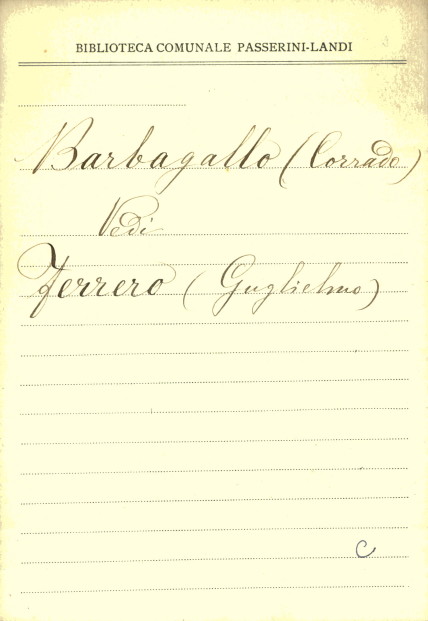 BIBLIOTECA COMUNALE PASSERINI-LANDI
Barbagallo (Corrado)
Vedi
Ferrero (Guglielmo)
C